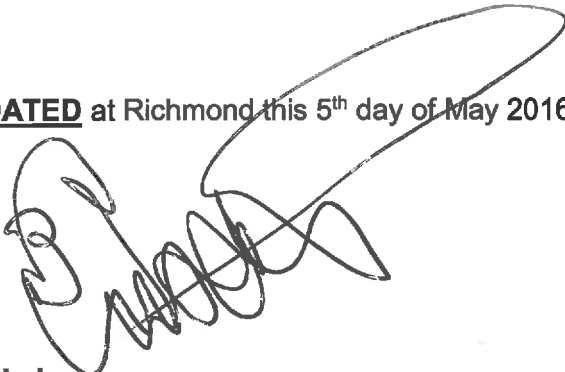 DATED at Richmond this 5th day of May 2016